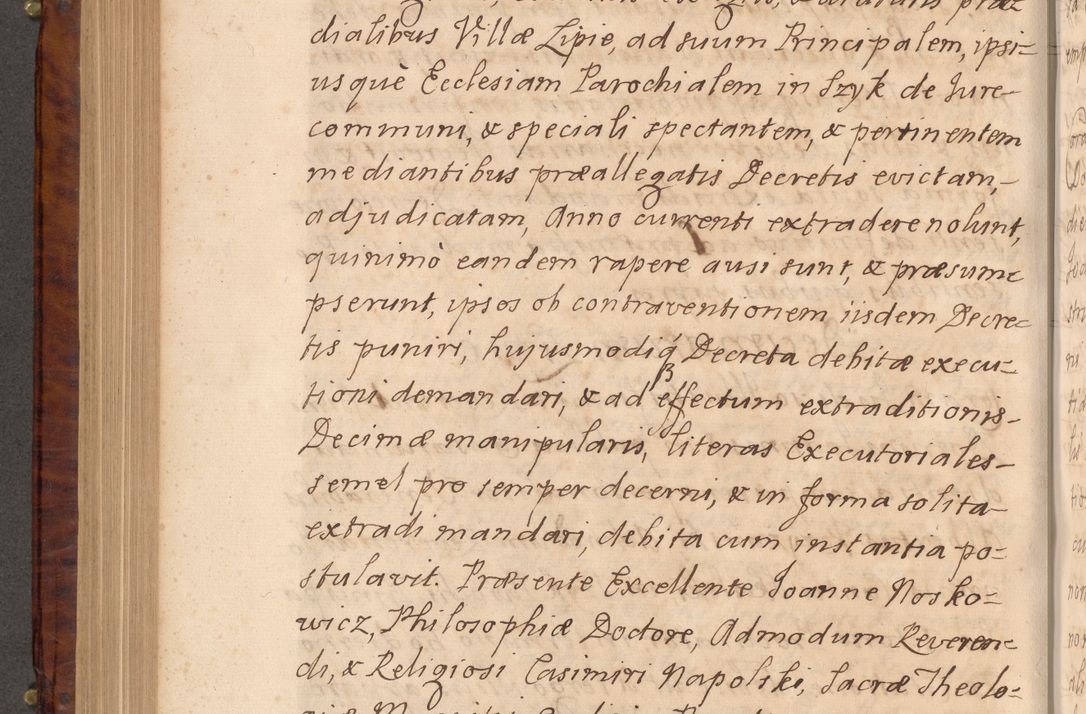 dialibus Villæ Lipie, ad suum Principalem, ipsi=
usquè Ecclesiam Parochialem in Szyk de Jure
communi, & speciali spectantem, & pertinentem
mediantibus præallegatis Decretis evictam,
adjudicatam, Anno currenti extradere nolunt,
quinimò eandem rapere ausi sunt, & præsum
pserunt, ipsos ob contraventionem iisdem Decre=
tis puniri, hujusmodiq́ꝫ Decreta debitæ execu=
tioni demandari, & ad effectum extraditionis
Decimæ manipularis, literas Executoriales
semel pro semper decerni, & in forma solita
extradi mandari, debita cum instantia po=
stulavit. Præsente Excellente Joanne Nosko=
wicz, Philosophiæ Doctore, Admodum Reveren=
di, & Religiosi Casimiri Napolski, Sacræ Theolo=